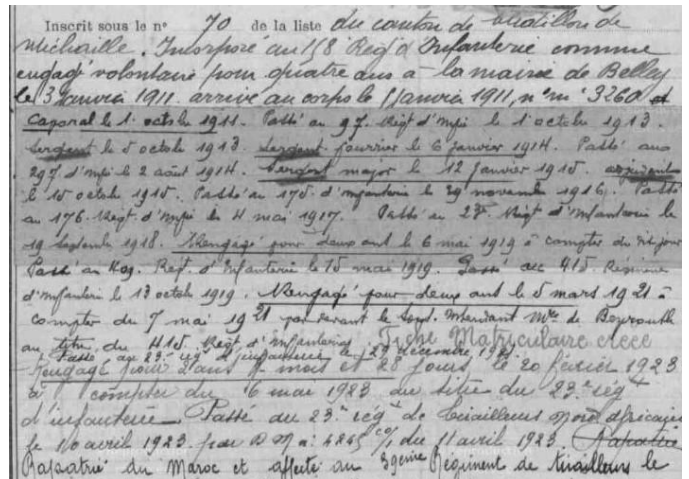 Inscrit sous le n° 70 de la liste du canton de Chatillon de
Michaille. Incorporé au 158 Reg d'Infanterie comme
engagé volontaire pour quatre ans à la mairie de Belley
le 3 Janvier 1911. arrivé au corps le Janvier 1911, n° m° 3260 et
Caporal le 1. octobre 1911. Passé au 97. Régt d'Infie le 1 octobre 1913.
Sergent le 5 octobre 1913. Sergent fourrier le 6 janvier 1914. Passé au
297 d'Infie le 2 août 1914. Sergent major le 12 janvier 1915. adjudant
le 15 octobre 1915. Passé au 175. d'infanterie le 29 novembre 1916. Passé
au 176. Régt d'Infie le 4 mai 1917. Passé au 23e Régt d'Infanterie le
19 Septembre 1918. Rengagé pour deux ans le 6 mai 1919 à compter du jour
Passé au 409. Régt. d'Infanterie le 15 mai 1919. Passé au 415. Régiment
d'Infanterie le 13 octobre 1919. Rengagé pour deux ans le 5 mars 1921 à
compter du 7 mai 1921 par devant le Sous. Intendant Mre de Beyrouth
au titre du 415. Régt d'Infanterie. Fiche Matriculaire créée
Passé au 23e rég d'infanterie le 29 décembre
Rengagé pour 2 ans mois et 28 jours, le 20 février 1923
à compter du 6 mai 1923 au titre du 23e régt
d'infanterie. Passé au 23e régt de tirailleurs Nord Africains
le 10 avril 1923. par D M n: 4245 du 11 avril 1923.
Rapatrié du Maroc et affecté au Régiment de tirailleurs le